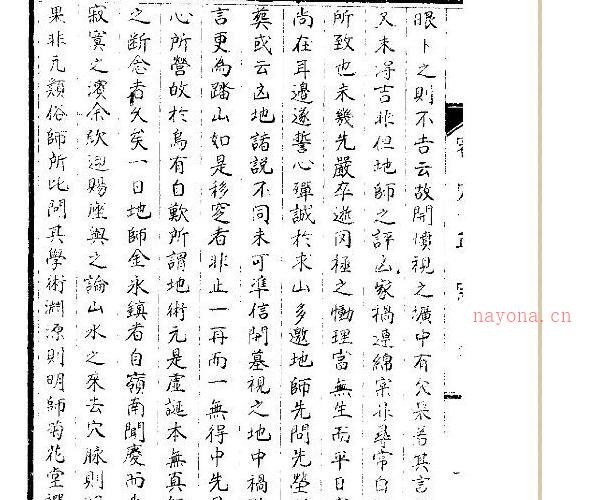 眼卜之則不吉云故開憤視之壙中有欠果若其言
又未得吉非但地師之評凶家禍連綿罙非尋常白
所致也未幾先嚴卒逝罔極之慟理當無生而平日
尚在耳邊遂誓心殫誠於求山多邀地師先問先塋
葬或云凶地諸說不同未可準信開墓視之地中禍
言更為踏山如是移窆者非止一再而一無得中先
心所營故於烏有自歎所謂地術元是虛誕本無真
之斷念者久矣一日地師金永鎮者自嶺南聞慶而
寂寞之濱余欣迎賜座與之論山水之來去穴脉則
果非凡類俗師所比問其學術淵源則明師菊花堂
nayona.cn